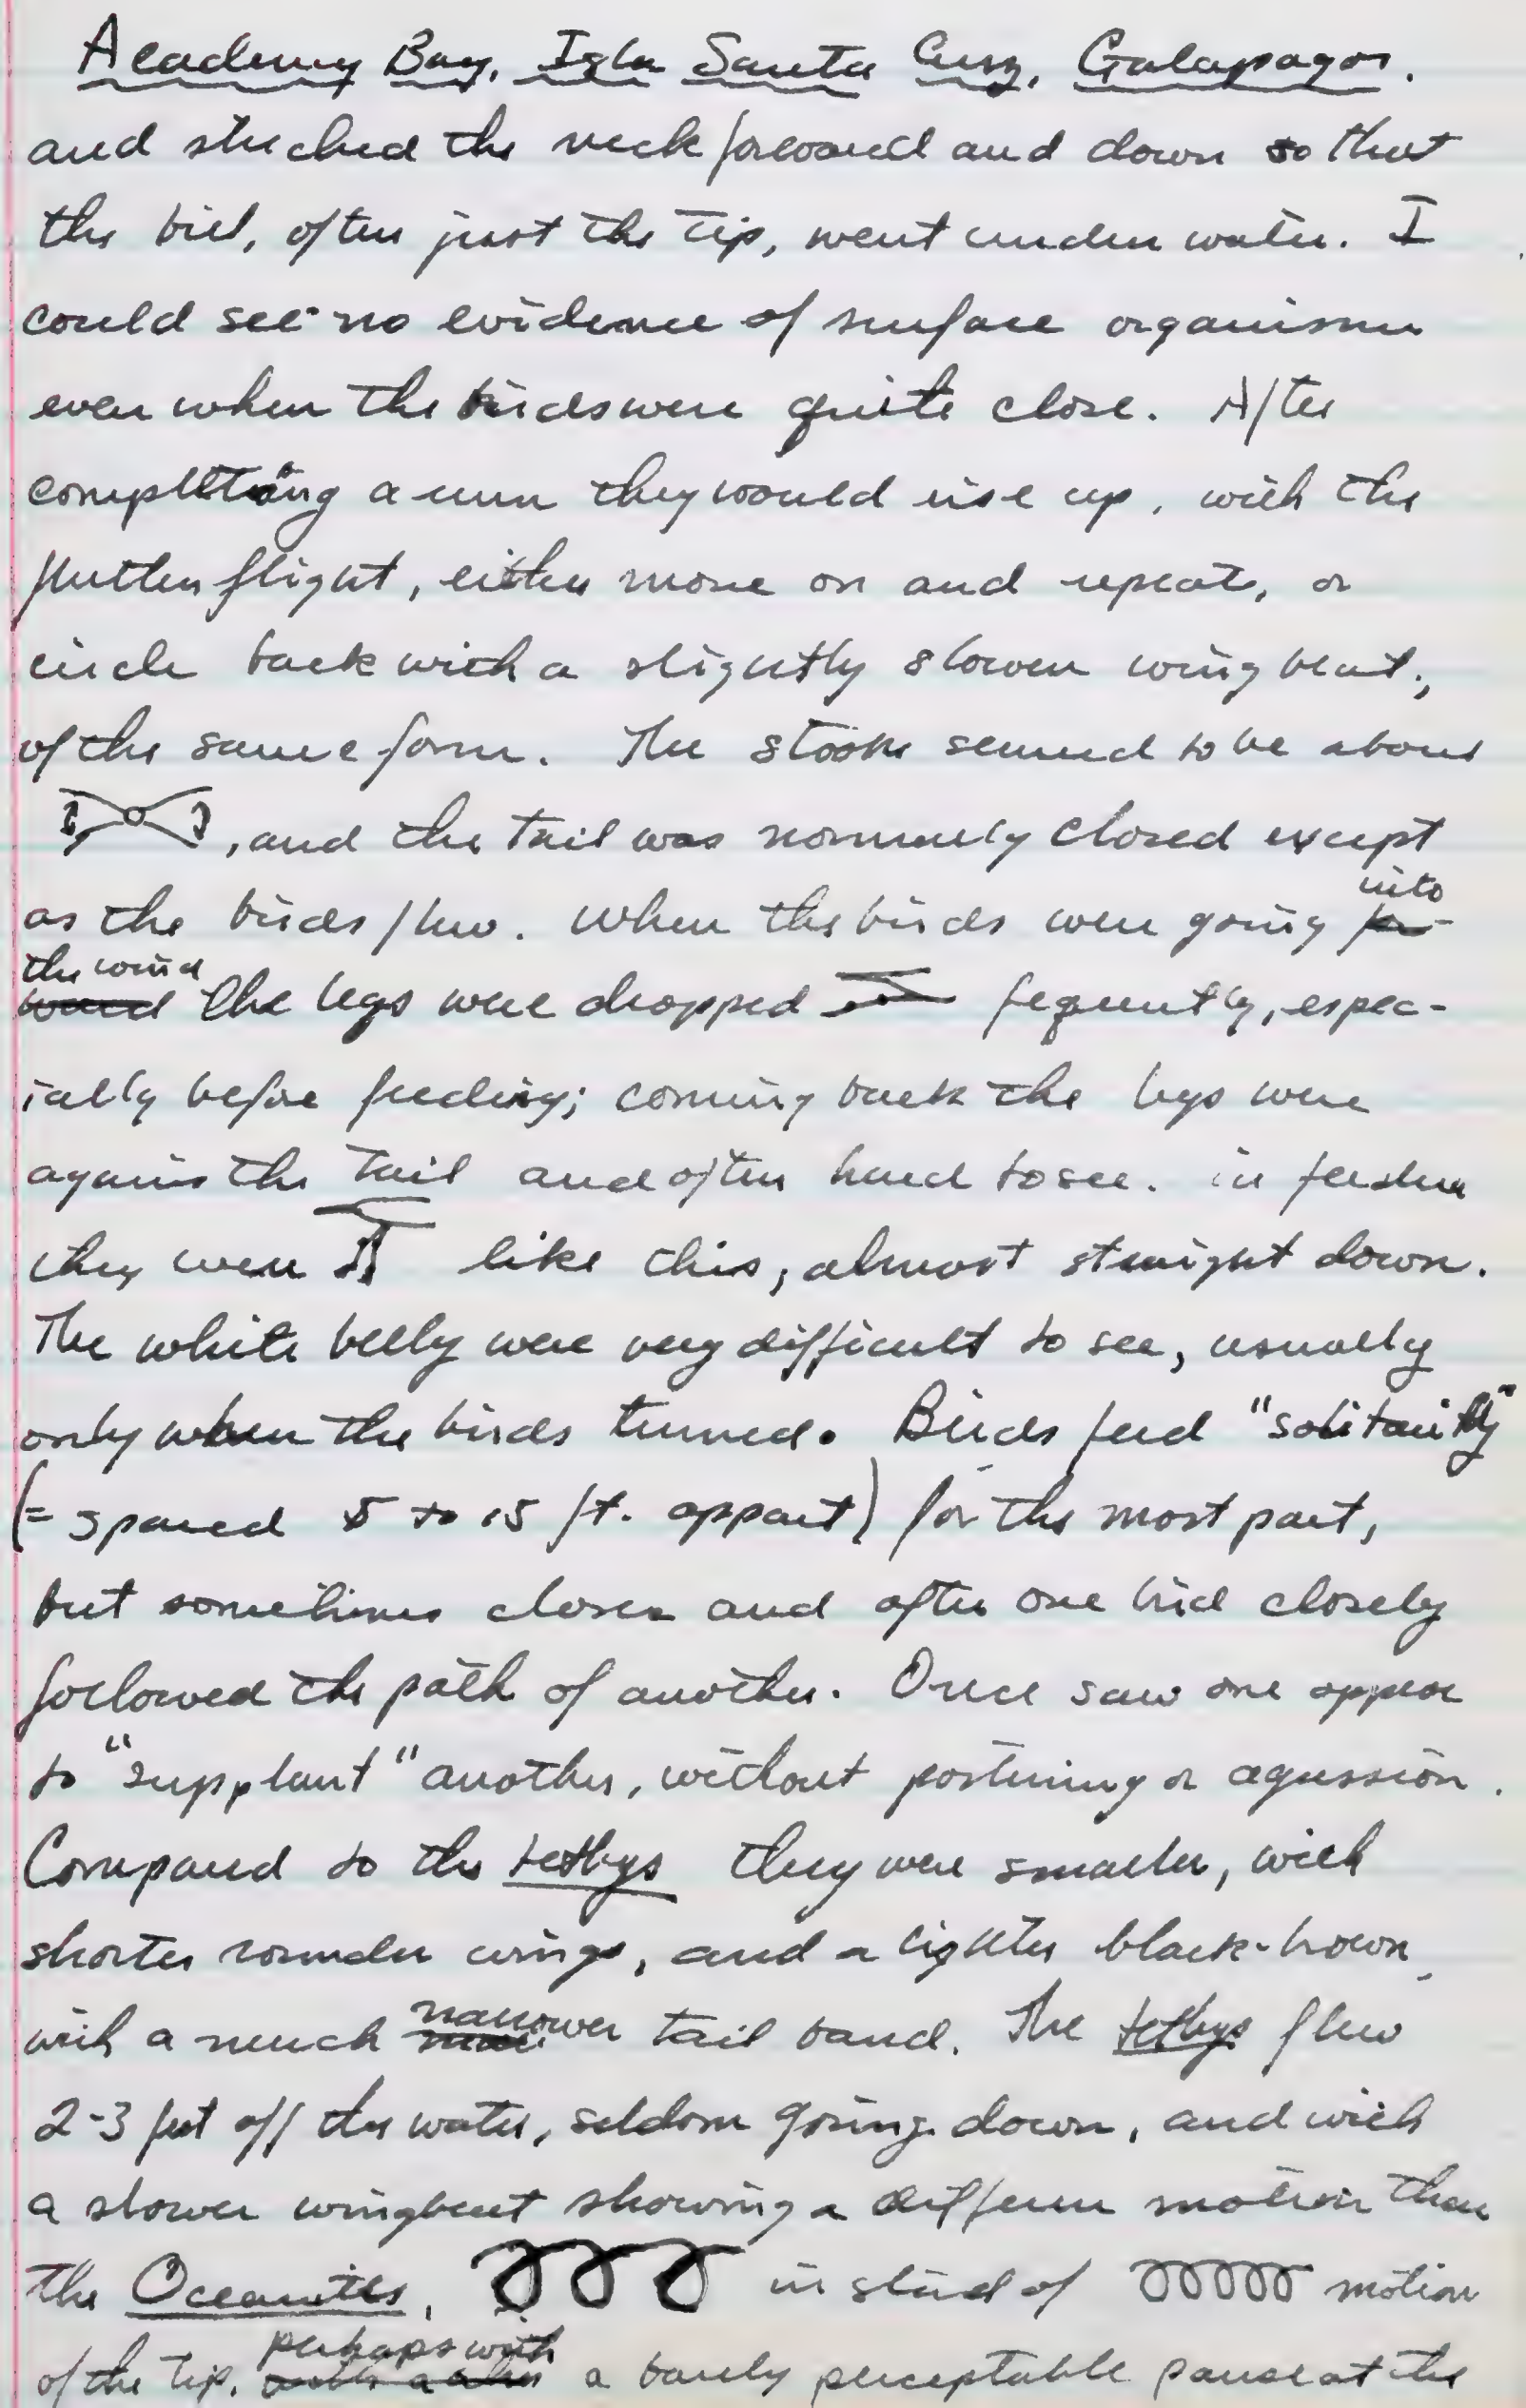 Academy Bay, Isla Santa Cruz, Galapagos.
and streched the neck forward and down so that
the bill, often just the tip, went under water. I
could see no evidence of surface organisms
even when the birds were quite close. After
completing a run they would rise up, with the
flutter flight, either move on and repeat, or
circle back with a slightly slower wing beat,
of the same form. The stroke seemed to be about
, and the tail was normally closed except
as the birds flew. When the birds were going into
the wind the legs were dropped frequently, espec-
ially before feeding; coming back the legs were
against the tail and often hard to see. in feeding
they were like this, almost straight down.
The white belly were very difficult to see, usually
only when the birds turned. Birds feed "solitarily"
(= spaced 5 to 15 ft. appart) for the most part,
but sometimes closer and often one bird closely
followed the path of another. Once saw one appear
to "supplant" another, without posturing or agression.
Compared to the tethys they were smaller, with
shorter rounder wings, and a lighter black-brown,
with a much narrower tail band. The tethys flew
2-3 feet off the water, seldom going down, and with
a slower wingbeat showing a different motion than
the Oceanites, in stead of motion
of the tip, perhaps with a barely perceptable pause at the